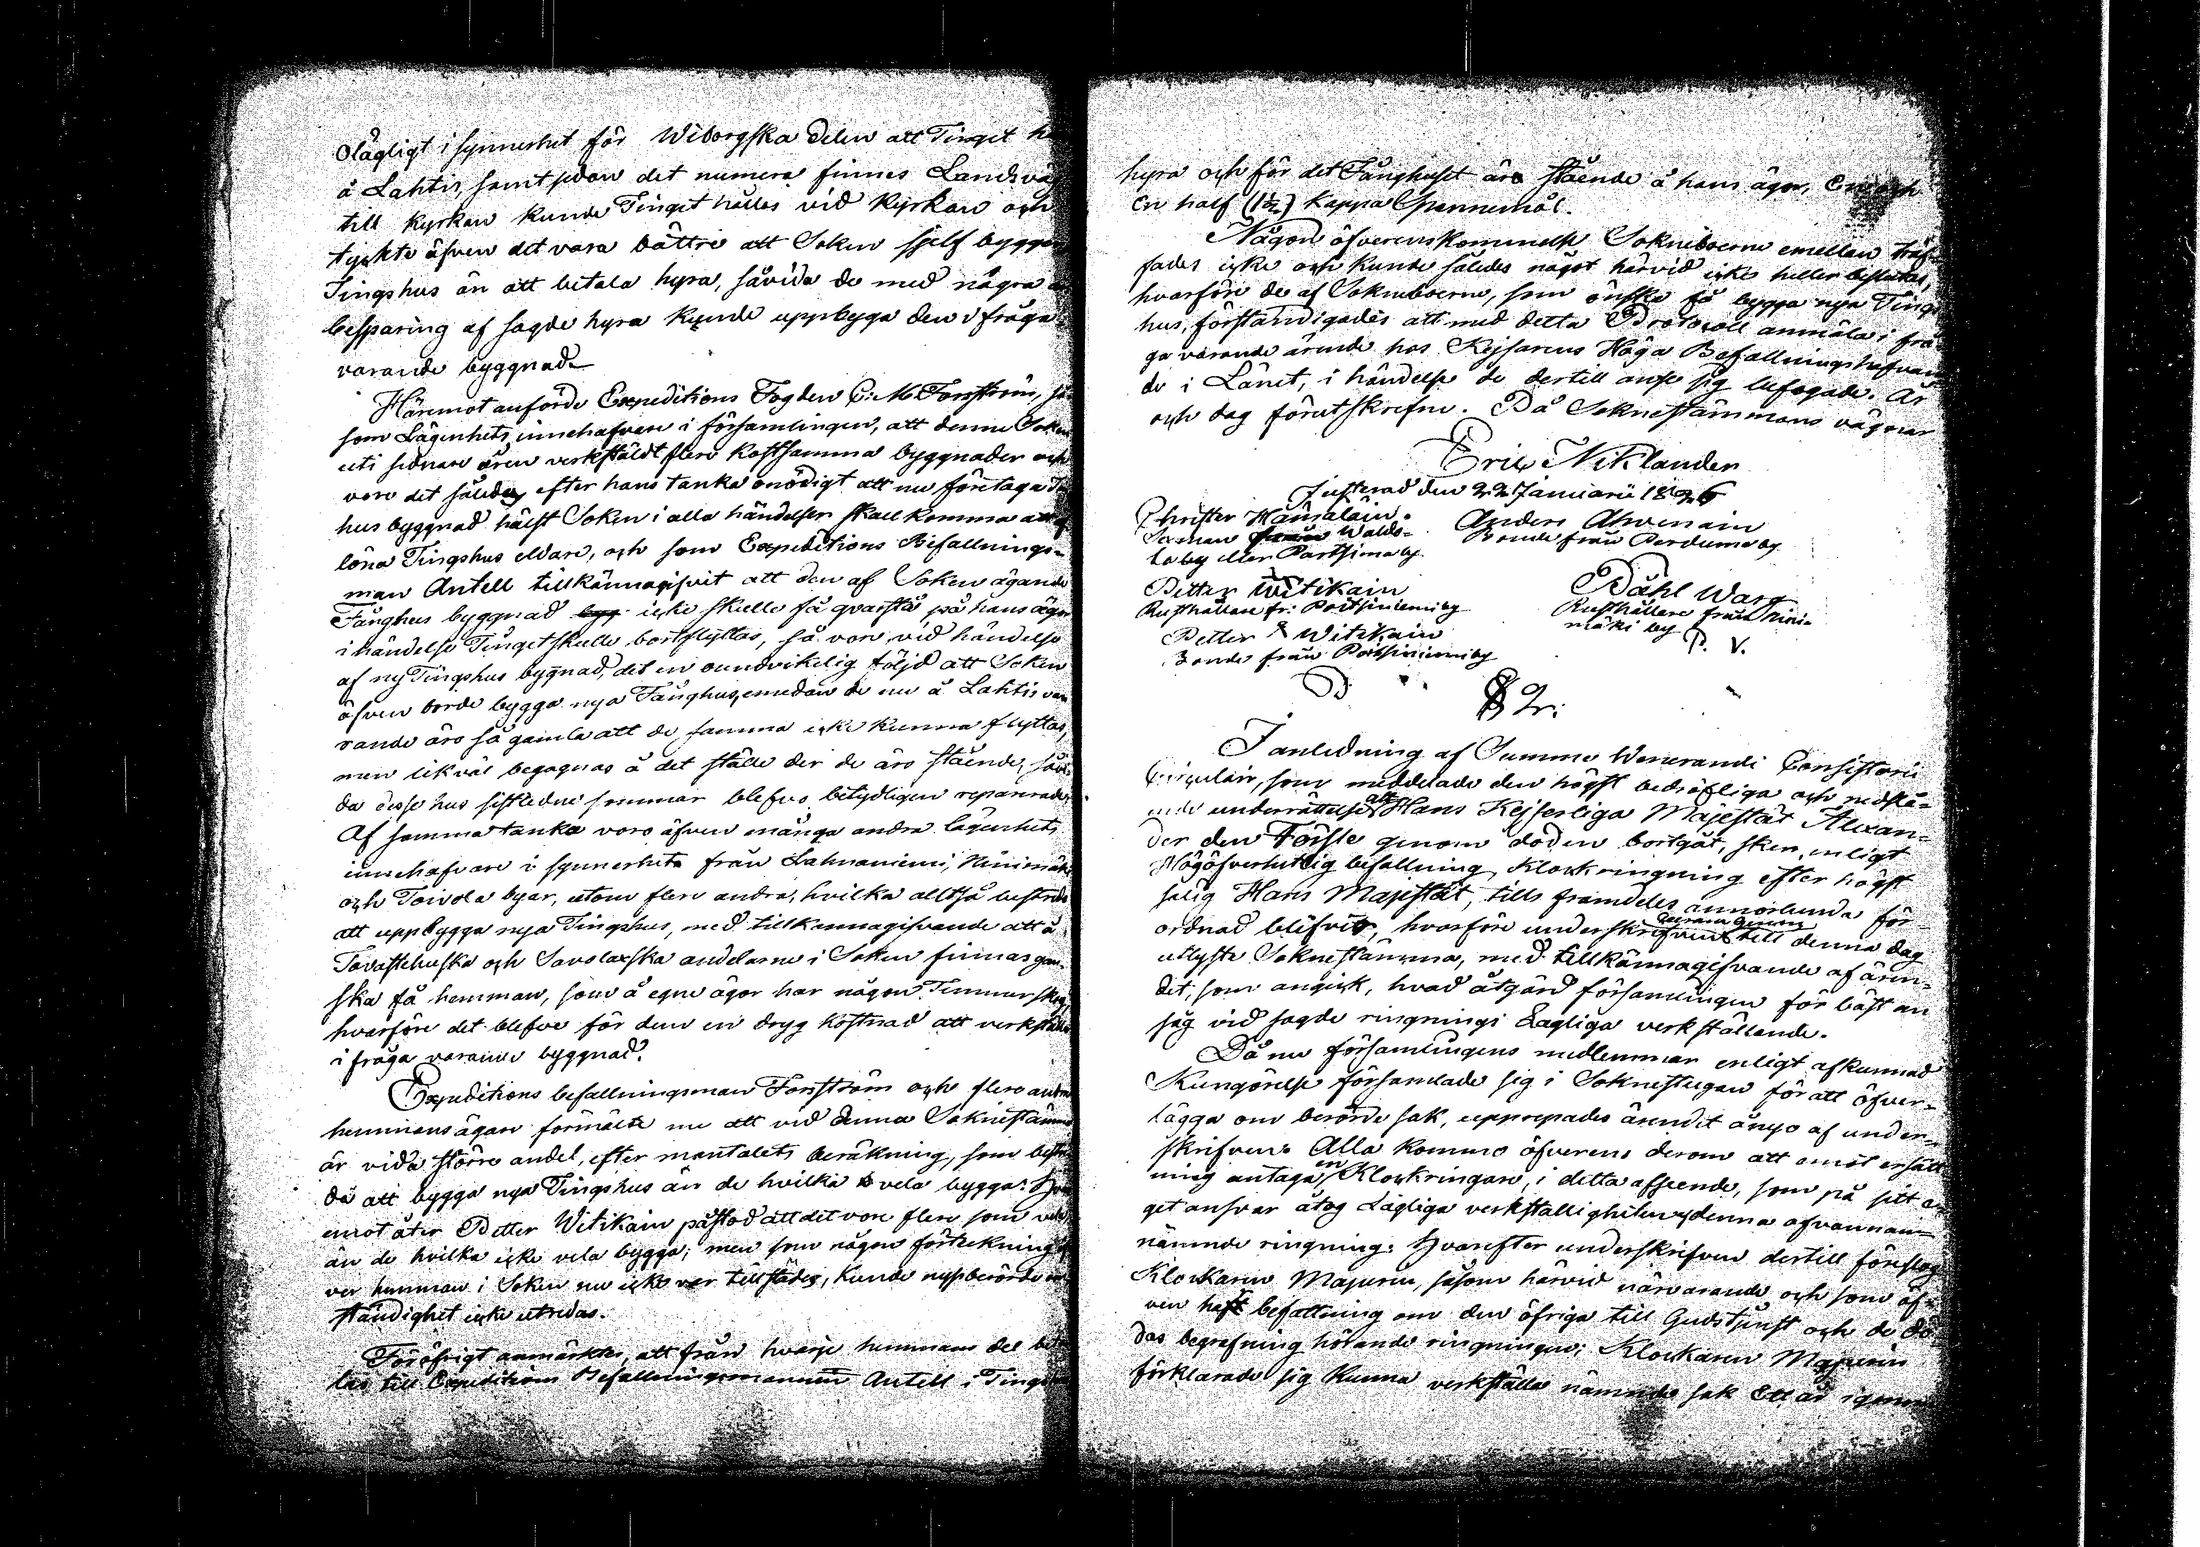 olägligt i synnerhet för Wiborgska delen att Tinget
å Lahtis, samt sedan det numera finnes Landsväg
till kyrkan kunde Tinget hålles vid Kyrkan och
tyckte äfven det vara bättre att Soken sjelf bygger
Tingshus än att betala hyra, såvida de med några
besparing af sagde hyra kunde uppbyga den i fråga
varande byggnad
Häremot anförde Expeditions Fogden C: M: Forsström, så
som Lägenhets innehafvare i församlingen, att denne Soken
uti sednare åren verkstäldt flere kostsamma byggnader och
vore det således efter hans tanka onödigt att nu företaga
hus byggnad hälst Soken i alla händelser skall komma att
löna Tingshus
man Antell tillkännagifvit att den af Soken ägande
Fånghus byggnad icke skulle få qvarstå på hans ägor
i händelse Tinget skulle bortflyttas, så vore vid händelse
af ny Tingshus bygnad, det en oundvikelig följd att Soken
äfven borde bygga nya Fånghus, emedan de nu å Lahtis va
rande äro så gamla att de samma icke kunna flyttas,
men likväl begagnas å det ställe der de äro stående, såvi
da desse hus sistledne sommar blefvo betydligen reparerade
Af samma tanka voro äfven många andra lägenhets
innehafvare i synnerhet från Lahnaniemi, Niinimäki
och Toivola byar, utom flere andra, hvilka alltså bestrida
att uppbygga nya Tingshus, med tillkännagifvande att å
Tavastehuska och Savolaxska andelarne i Soken finnas gan-
ska få hemman, som å egne ägor har någon Timmer skog
hvarföre det blefve för dem en dryg kostnad att verkställa
i fråga varande byggnad.
Expeditions befallningsman Forsström och flere andra
hemmans ägare förmälte nu att vid denna Soknestämma
är vida större andel, efter mantalets beräkning, som bestri
da att bygga nya Tingshus än de hvilka vela bygga:
emot åter Petter Witikain påstod att det vore flere som vela
än de hvilka icke vela bygga; men som någon förteckning
ver hemman i Soken nu icke var tillstädes, kunde nyssberörde om
ständighet icke utredas.
För öfrigt anmärktes, att från hvarje hemmans del beta
las till Expeditions Befallningsmannen Antell i Tings
hyra och för det Fånghuset äro stående å hans ägor, En och
en half (1½) Kappa Spannemål.
Någon öfverenskommelse Sokneboerne emellan träf-
fades icke och kunde således något härvid icke heller beslutas,
hvarföre de af Sokneboerne, som önska få bygga nya Tings
hus, förständigades att med detta Protocoll anmäla i frå-
ga varande ärende hos Kejsarens Höga Befallningshafvan
de i Länet, i händelse de dertill anse sig befogade. År
och dag förutskrefne. På Soknestämmans vägnar
Eric Niklander
Justerad den 22 Januarii 1826
Christer Hämäläin.
Anders Ahvenain
Bonde från Perdumaby
Petter Witikain
Rusthållare fr: Poitsiniemi by
Påhl Warg
Rusthållare från Nini-
mäki by P. V.
Petter Witikain
Bonde från Poitsiniemi by
§ 2:
I anledning af Summe Wenerandi Consistorii
Circulair, som meddelade den högst bedröfliga och nedslå-
ande underrättelse att Hans Kejserliga Majestät Alexan-
der den Förste genom döden bortgåt, sker, enligt
Högöfverhetlig befallning, Klockringning efter högst
salig Hans Majestät, tills framdeles annorlunda för-
ordnad blifvit, hvarföre underskrifven till denna dag
utlyste Soknestämma, med tillkännagifvande af ären-
det, som angick, hvad åtgärd församlingen för bäst an
såg vid sagde ringnings Lagliga verkställande.
Då nu församlingens medlemmar enligt afkunnad
Kungörelse församlade sig i Soknestugan för att öfver-
lägga om berörde sak, upprepades ärendet ånyo af under-
skrifven: Alla kommo öfverens derom att emot ersätt
ning antaga en Klockringare, i detta afseende, som på sitt e-
get ansvar åtog Lagliga verkställigheten af denna ofvannam-
nämnde ringning: Hvarefter underskrifven dertill föreslog
Klockaren Majurin, såsom härvid närvarande och som äf-
ven haft befattning om den öfriga till Gudstjenst och de dö-
das begrefning hörande ringningen; Klockaren Majurin
förklarade sig kunna verkställa nämnde sak Ett år igenom